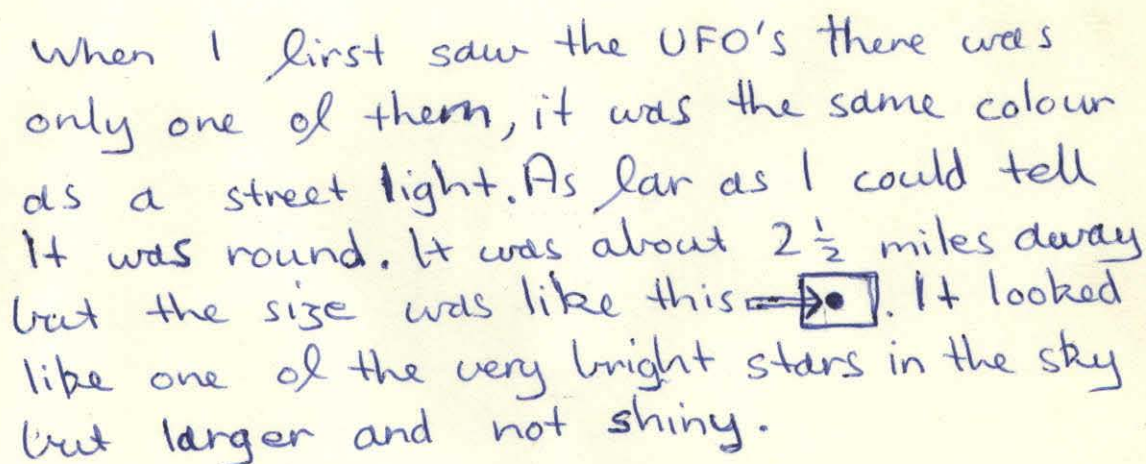 When I first saw the UFO's there was
only one of them, it was the same colour
as a street light. As far as I could tell
It was round. It was about 2 ½ miles away
but the size was like this ⇒ •. It looked
like one of the very bright stars in the sky
but larger and not shiny.